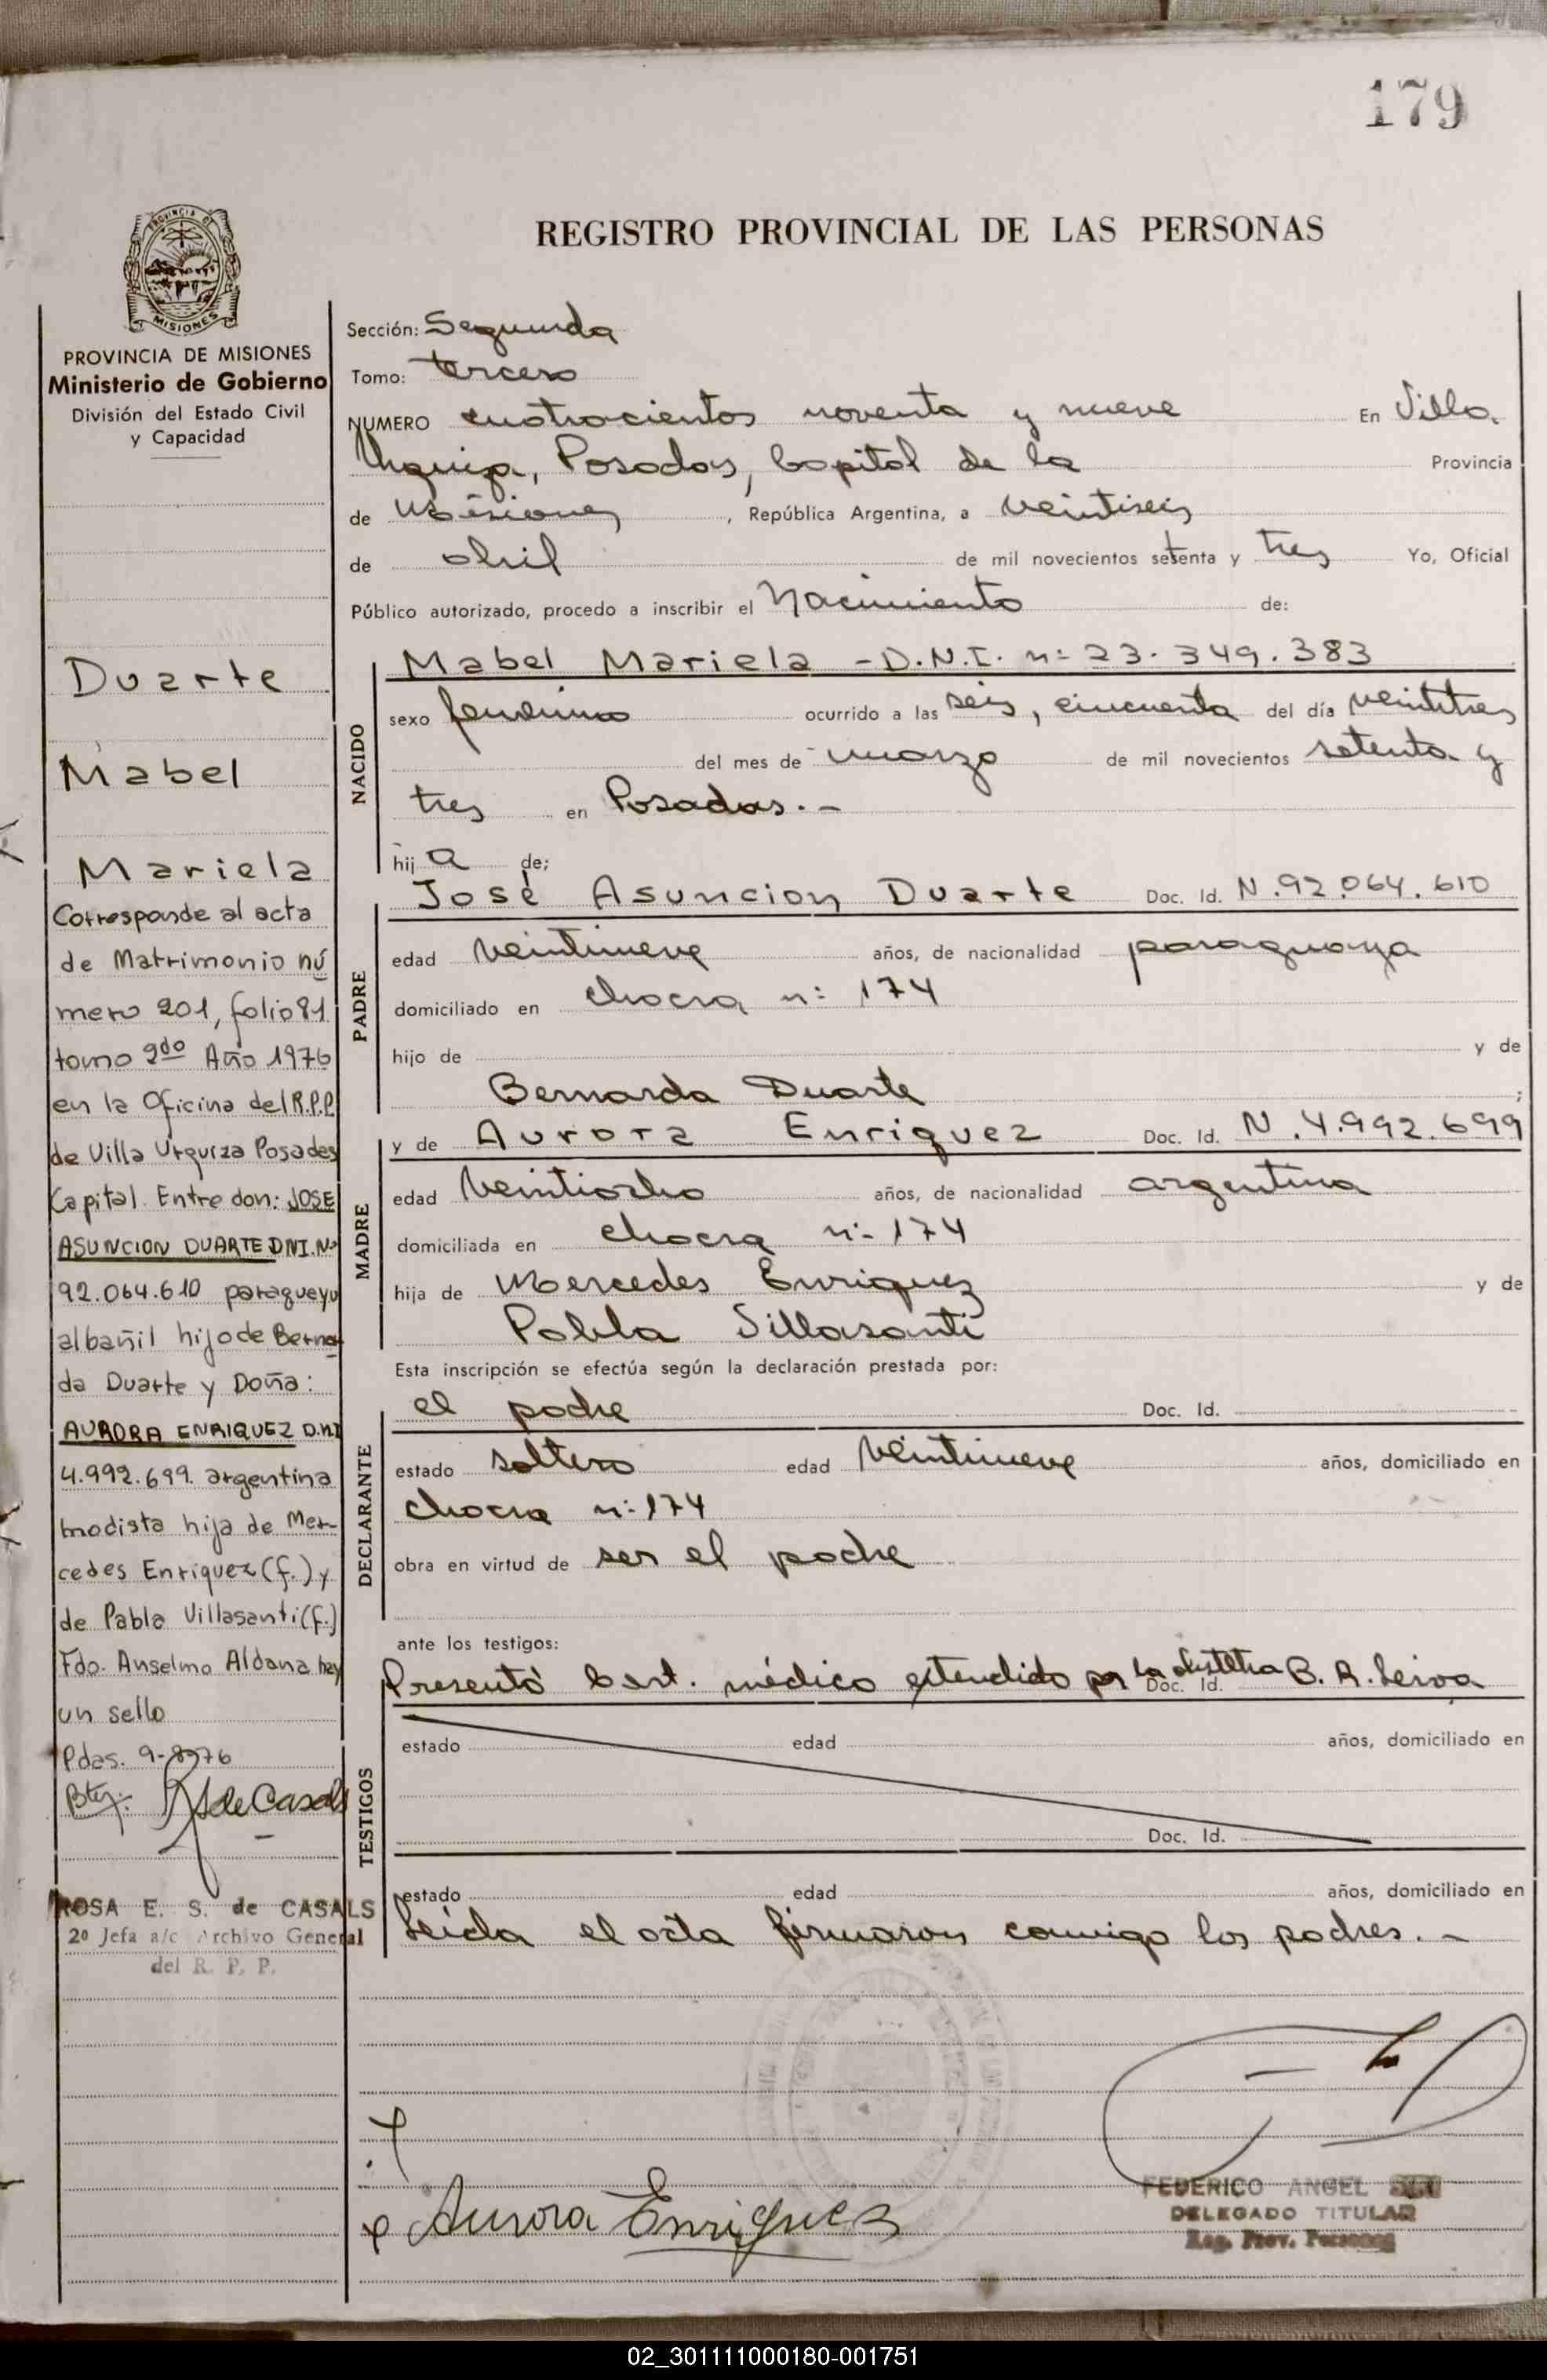 179
REGISTRO PROVINCIAL DE LAS PERSONAS
PROVINCIA DE MISIONES
Ministerio de Gobierno
División del Estado Civil
y Capacidad
Duarte
Mabel
Mariela
Corresponde al acta
de Matrimonio nú
mero 201, folio 81
tomo 2do Año 1976
en la Oficina del R.P.P
de Villa Urquiza Posadas
Capital. Entre don: JOSE
ASUNCION DUARTE DNI. Nº
92.064.610 paragueyo
albañil hijo de Berna
da Duarte y Doña:
AURORA ENRIQUEZ D.N.I
4.992.699. argentina
modista hija de Mer-
cedes Enriquez (f.) y
de Pabla Villasanti (f.)
Fdo. Anselmo Aldana hay
un sello
Pdas. 9-8976
de Casals
ROSA E. S. de CASALS
2º Jefa a/c Archivo General
del R. P. P.
Sección: Segunda
Tomo: tercero
NUMERO cuatrocientos noventa y nueve En Villa
Urquiza, Posadas, Capital de la Provincia
de Misiones, República Argentina, a veintiseis
de abril de mil novecientos setenta y tres Yo, Oficial
Público autorizado, procedo a inscribir el Nacimiento de:
NACIDO
Mabel Mariela - D.N.I. nº 23.349.383
sexo femenino ocurrido a las seis, cincuenta del día veintitres
del mes de marzo de mil novecientos setenta y
tres en Posadas.-
hija de;
PADRE
José Asuncion Duarte Doc. Id. N.92.064.610
edad veintinueve años, de nacionalidad paraguaya
domiciliado en chacra nº 174
hijo de y de
Bernarda Duarte ;
MADRE
y de Aurora Enriquez Doc. Id. N.4.992.699
edad veintiocho años, de nacionalidad argentina
domiciliada en chacra nº 174
hija de Mercedes Enriquez y de
Pabla Villasanti
Esta inscripción se efectúa según la declaración prestada por:
DECLARANTE
el padre Doc. Id.
estado soltero edad veintinueve años, domiciliado en
chacra nº 174
obra en virtud de ser el padre
ante los testigos:
TESTIGOS
Presentó Cert. médico extendido por la obstetra B. R. Leiva
Doc. Id.
estado edad años, domiciliado en
Doc. Id.
estado edad años, domiciliado en
Leida el acta firmaron conmigo los padres.-
Aurora Enriquez
FEDERICO ANGEL
DELEGADO TITULAR
Reg. Prov. Personas
02_301111000180-001751